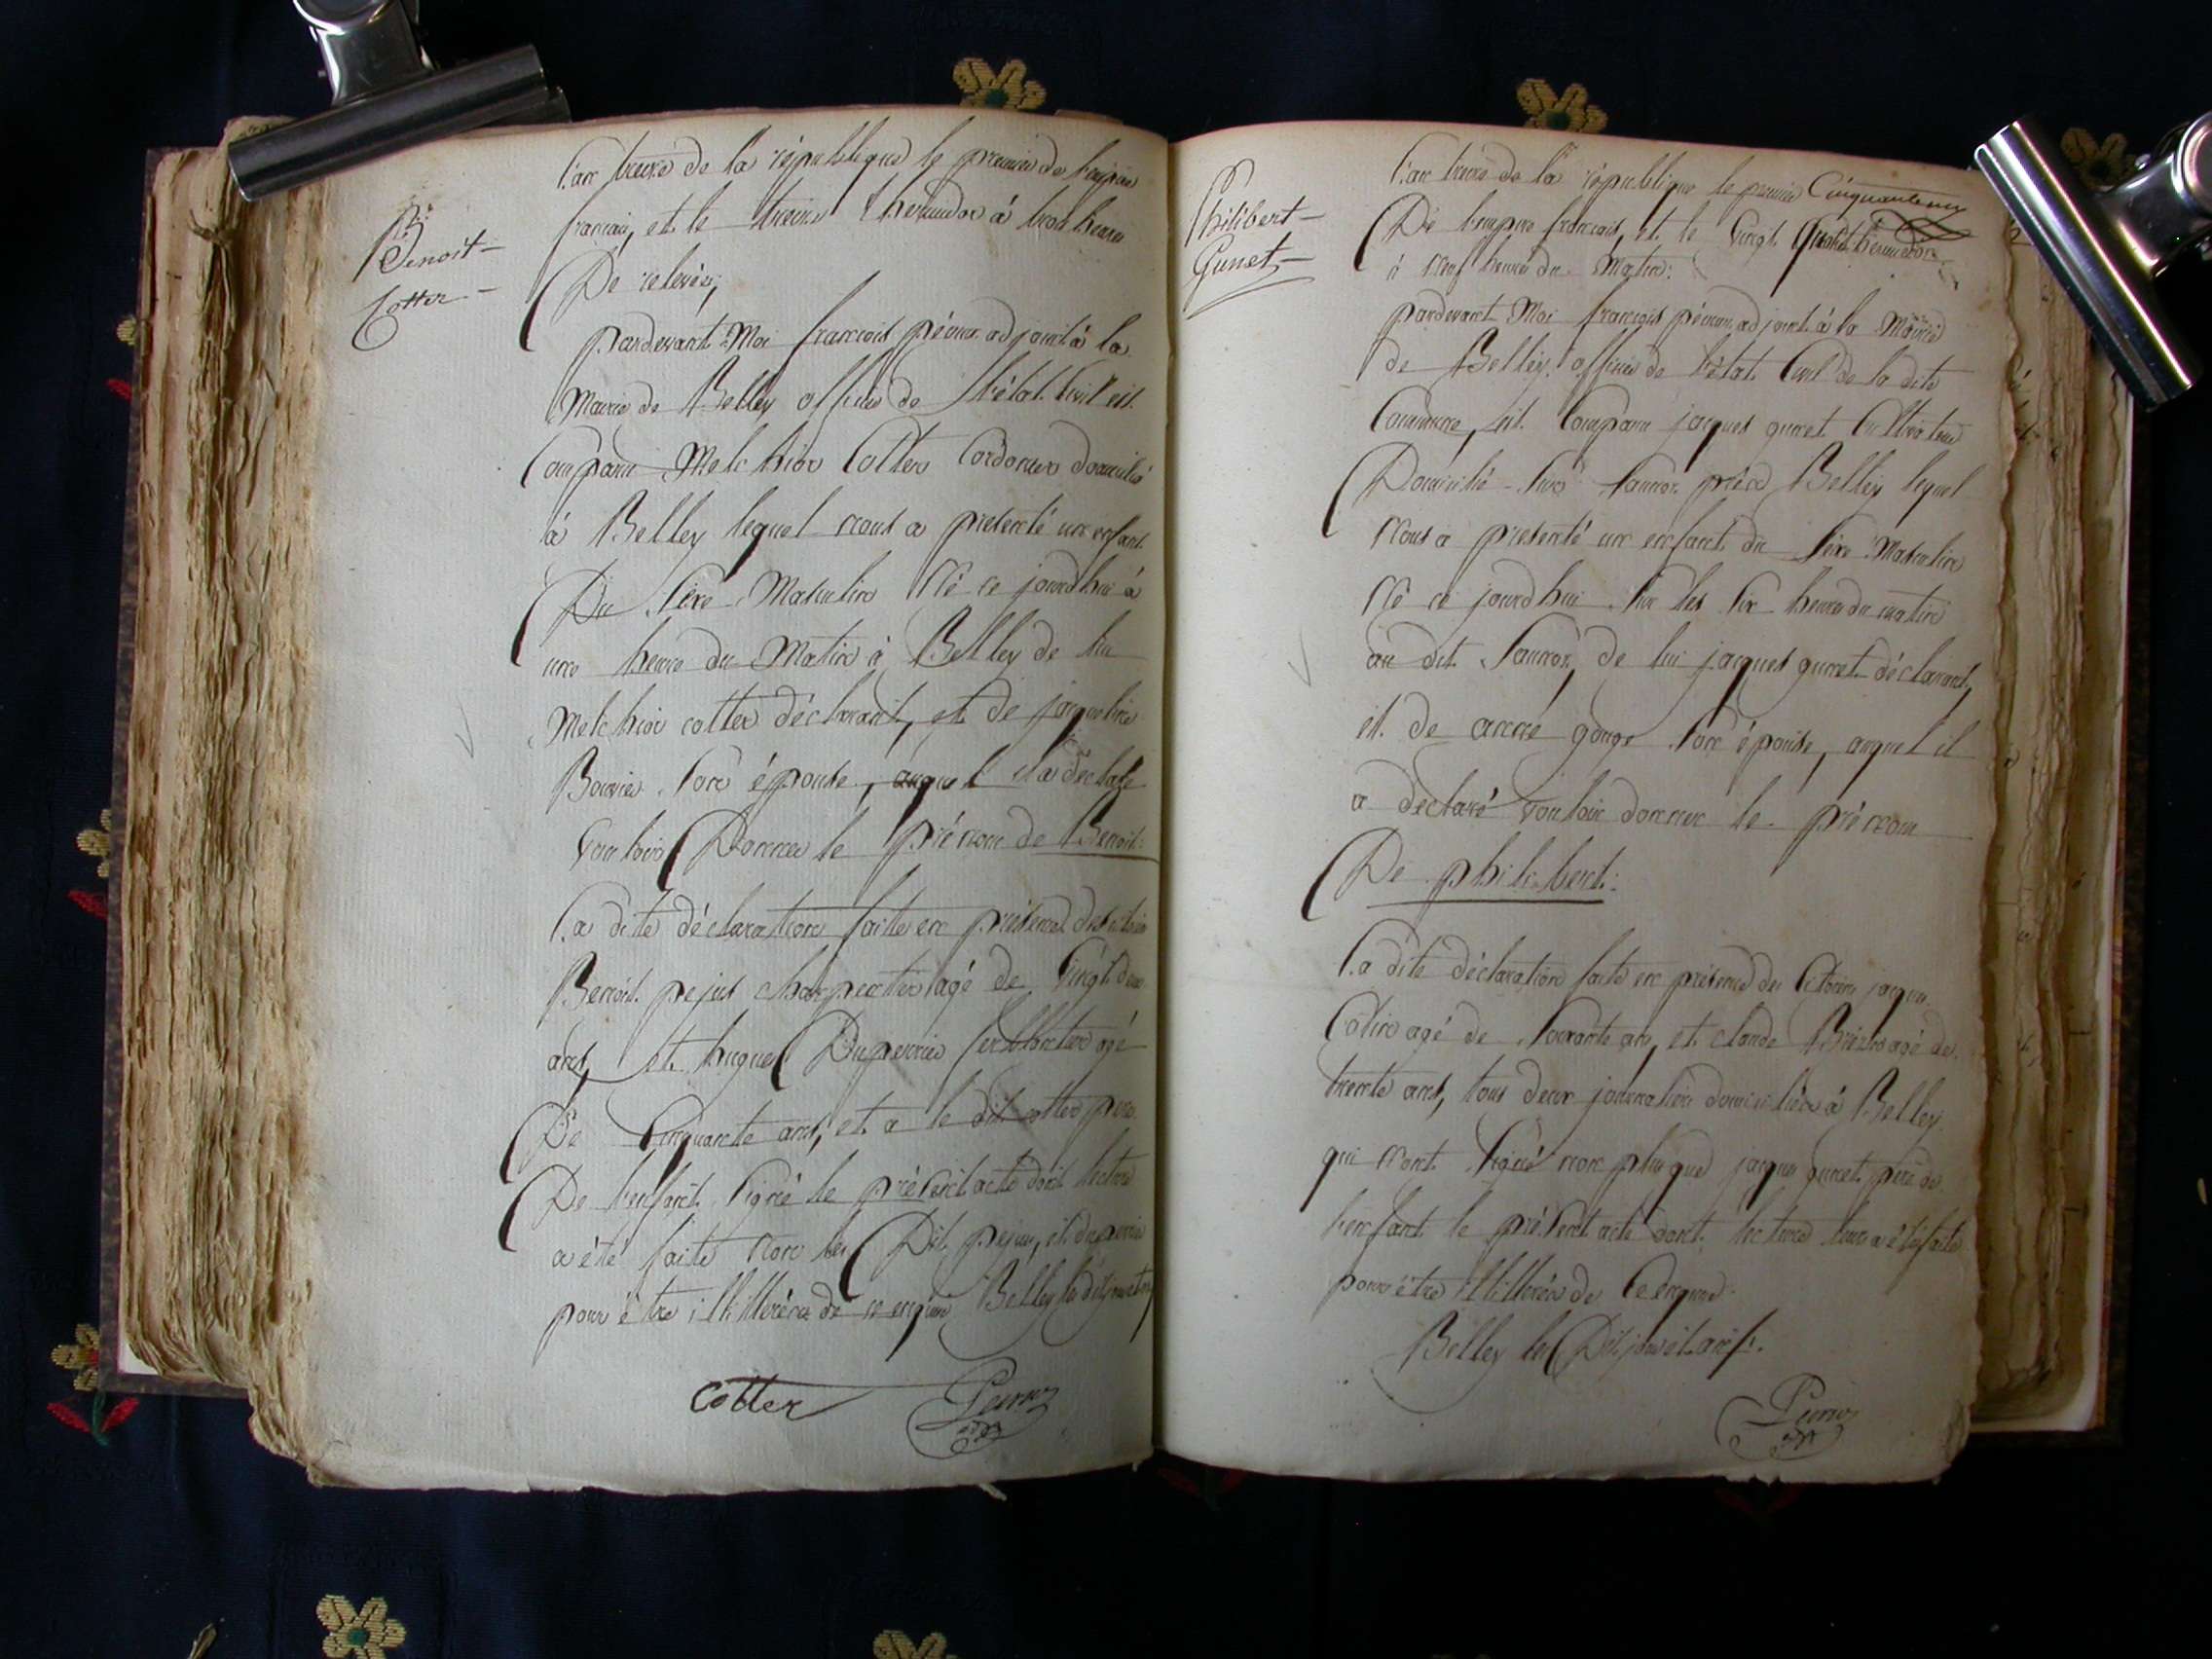 Benoit
Cotter
L'an treize de la république le premier de l'empire
francais, et le treize thermidor à trois heures
De relevée,
pardevant Moi francois péron adjoint à la
Mairie de Belley officier de l'état Civil est
Comparu Melchior Cotter Cordonier domicilié
à Belley lequel nous a presenté un enfant
Du sexe Masculin Né ce jourdhui à
une heure du Matin à Belley de lui
Melchior cotter déclarant, et de jaqueline
Bouvier son épouse, auquel il a déclaré
Vouloir Donner le prénom de Benoit:
La dite déclaration faite en présence des citoiens
Benoit pejus charpentier agé de Vingt deux
ans, et hugues Duperrier ferblantier agé
De Cinquante ans, et a le dit cotter pere
De l'enfant signé le présent acte dont lecture
a été faite Non les Dits pejus, et duperrier
pour être illitterés de ce enquis Belley les dits jour et an
Cotter
Philibert
Gunet
L'an treize de la république le premier Cinquante
De l'empire francais, et le Vingt thermidor
à neuf heures du Matin:
pardevant Moi francois péron adjoint à la Mairie
de Belley officier de l'état Civil de la dite
Commune, est Comparu jacques gunet Cultivateur
Domicilié sur près Belley lequel
Nous a presenté un enfant du sexe Masculin
Né ce jourdhui sur les six heures du matin
au dit de lui jacques gunet déclarant,
et de anne gouge son épouse, auquel il
a déclaré vouloir donner le prénom
De philibert:
La dite déclaration faite en présence des Citoiens jacques
agé de soixante ans, et claude agé de
trente ans, tous deux journaliers domiciliés à Belley
qui n'ont signé non plus que jacques gunet père de
l'enfant le présent acte dont lecture leur a été faite
pour être illitterés de ce enquis
Belley les Dits jour et an.